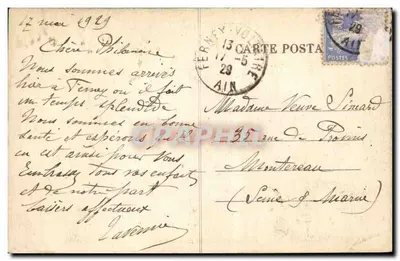 17 mai 1929
Chère Philomène
Nous sommes arrivés
hier a Ferney où il fait
un temps splendide
Nous sommes en bonne
santé et espérons qu'il
en est aussi pour Vous
Embrassez tous vos enfants
et de notre part
baisers affectueux
FERNEY-VOLTAIRE
13
17-5
29
AIN
CARTE POSTA
29
AIN
POSTES
Madame Veuve Simard
35 rue de Provins
Montereau
(Seine & Marne)